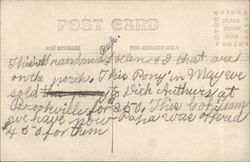 POST CARD
FOR MESSAGE
FOR ADDRESS ONLY
PLACE
STAMP
HERE
This is Grandma, Helen & I that are
on the porch. This Pony in May we
sold to Dick Arthurs at
Brookville for 250. This Colt Team
we have now Papa was offerd
450 for them